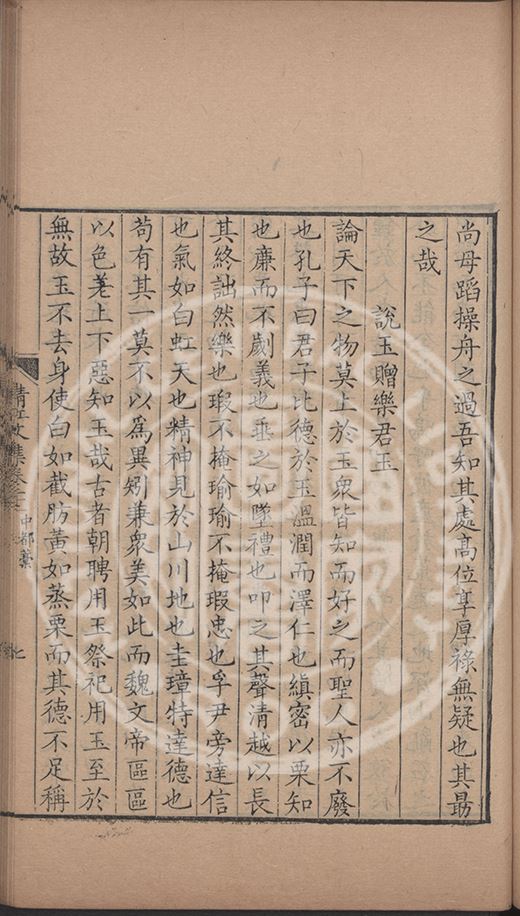 尚母蹈操舟之過吾知其處高位享厚祿無疑也其勗
之哉
說玉贈樂君玉
論天下之物莫上於玉衆皆知而好之而聖人亦不廢
也孔子曰君子比德於玉溫潤而澤仁也縝密以栗知
也廉而不劌義也垂之如墜禮也叩之其聲清越以長
其終詘然樂也瑕不掩瑜瑜不掩瑕忠也孚尹旁達信
也氣如白虹天也精神見於山川地也圭璋特達德也
茍有其一莫不以爲異矧兼衆美如此而魏文帝區區
以色差上下惡知玉哉古者朝聘用玉祭祀用玉至於
無故玉不去身使白如截肪黃如蒸栗而其德不足稱
清江文集卷之
中都藁